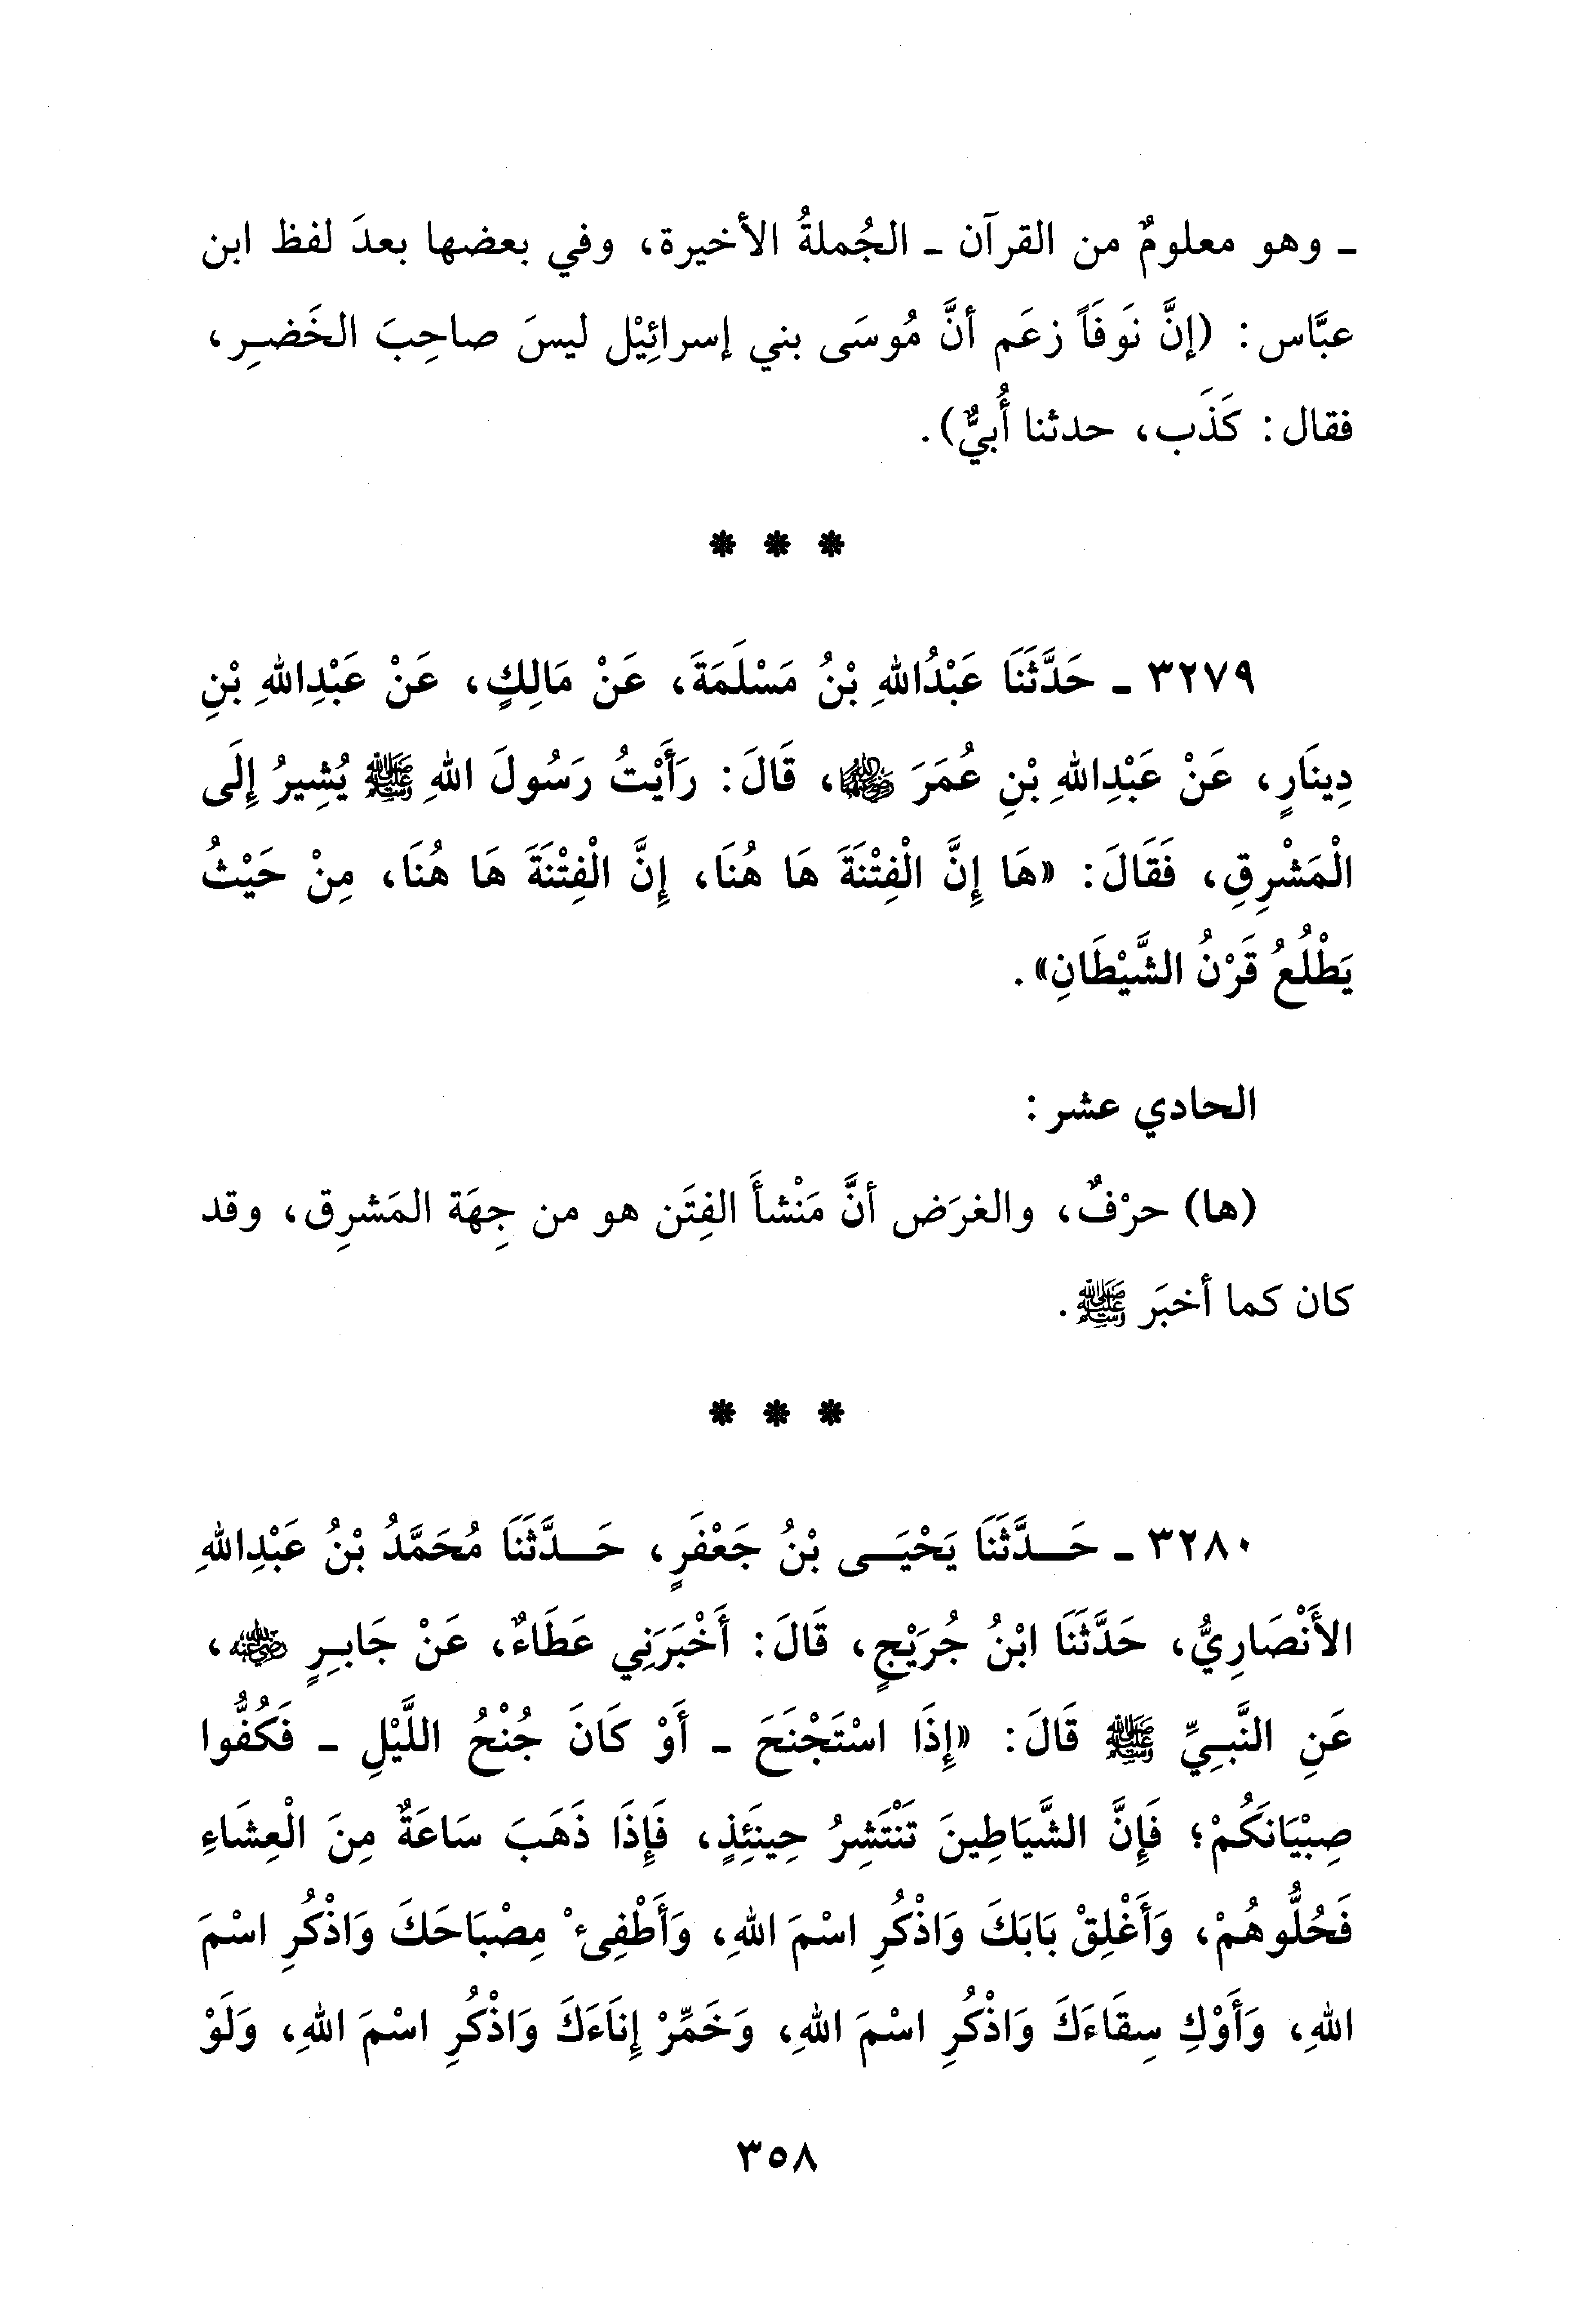 ـ وهو معلومٌ من القرآن ـ الجُملةُ الأخيرة، وفي بعضها بعدَ لفظ ابن
عبَّاس: (إنَّ نَوفَاً زعَم أنَّ مُوسَى بني إسرائِيْل ليسَ صاحِبَ الخَضِر،
فقال: كَذَب، حدثنا أُبيٌّ).
* * *
٣٢٧٩ ـ حَدَّثَنَا عَبْدُاللهِ بْنُ مَسْلَمَةَ، عَنْ مَالِكٍ، عَنْ عَبْدِاللهِ بْنِ
دِينَارٍ، عَنْ عَبْدِاللهِ بْنِ عُمَرَ رضي الله عنهما، قَالَ: رَأَيْتُ رَسُولَ اللهِ ﷺ يُشِيرُ إِلَى
الْمَشْرِقِ، فَقَالَ: «هَا إِنَّ الْفِتْنَةَ هَا هُنَا، إِنَّ الْفِتْنَةَ هَا هُنَا، مِنْ حَيْثُ
يَطْلُعُ قَرْنُ الشَّيْطَانِ».
الحادي عشر:
(ها) حرْفٌ، والغرَض أنَّ مَنْشأَ الفِتَن هو من جِهَة المَشرِق، وقد
كان كما أخبَر ﷺ.
* * *
٣٢٨٠ ـ حَـدَّثَنَا يَحْيَـى بْنُ جَعْفَرٍ، حَـدَّثَنَا مُحَمَّدُ بْنُ عَبْدِاللهِ
الأَنْصَارِيُّ، حَدَّثَنَا ابْنُ جُرَيْجٍ، قَالَ: أَخْبَرَنِي عَطَاءٌ، عَنْ جَابِرٍ رضي الله عنه،
عَنِ النَّبِيِّ ﷺ قَالَ: «إِذَا اسْتَجْنَحَ ـ أَوْ كَانَ جُنْحُ اللَّيْلِ ـ فَكُفُّوا
صِبْيَانَكُمْ؛ فَإِنَّ الشَّيَاطِينَ تَنْتَشِرُ حِينَئِذٍ، فَإِذَا ذَهَبَ سَاعَةٌ مِنَ الْعِشَاءِ
فَحُلُّوهُمْ، وَأَغْلِقْ بَابَكَ وَاذْكُرِ اسْمَ اللهِ، وَأَطْفِئْ مِصْبَاحَكَ وَاذْكُرِ اسْمَ
اللهِ، وَأَوْكِ سِقَاءَكَ وَاذْكُرِ اسْمَ اللهِ، وَخَمِّرْ إِنَاءَكَ وَاذْكُرِ اسْمَ اللهِ، وَلَوْ
٣٥٨